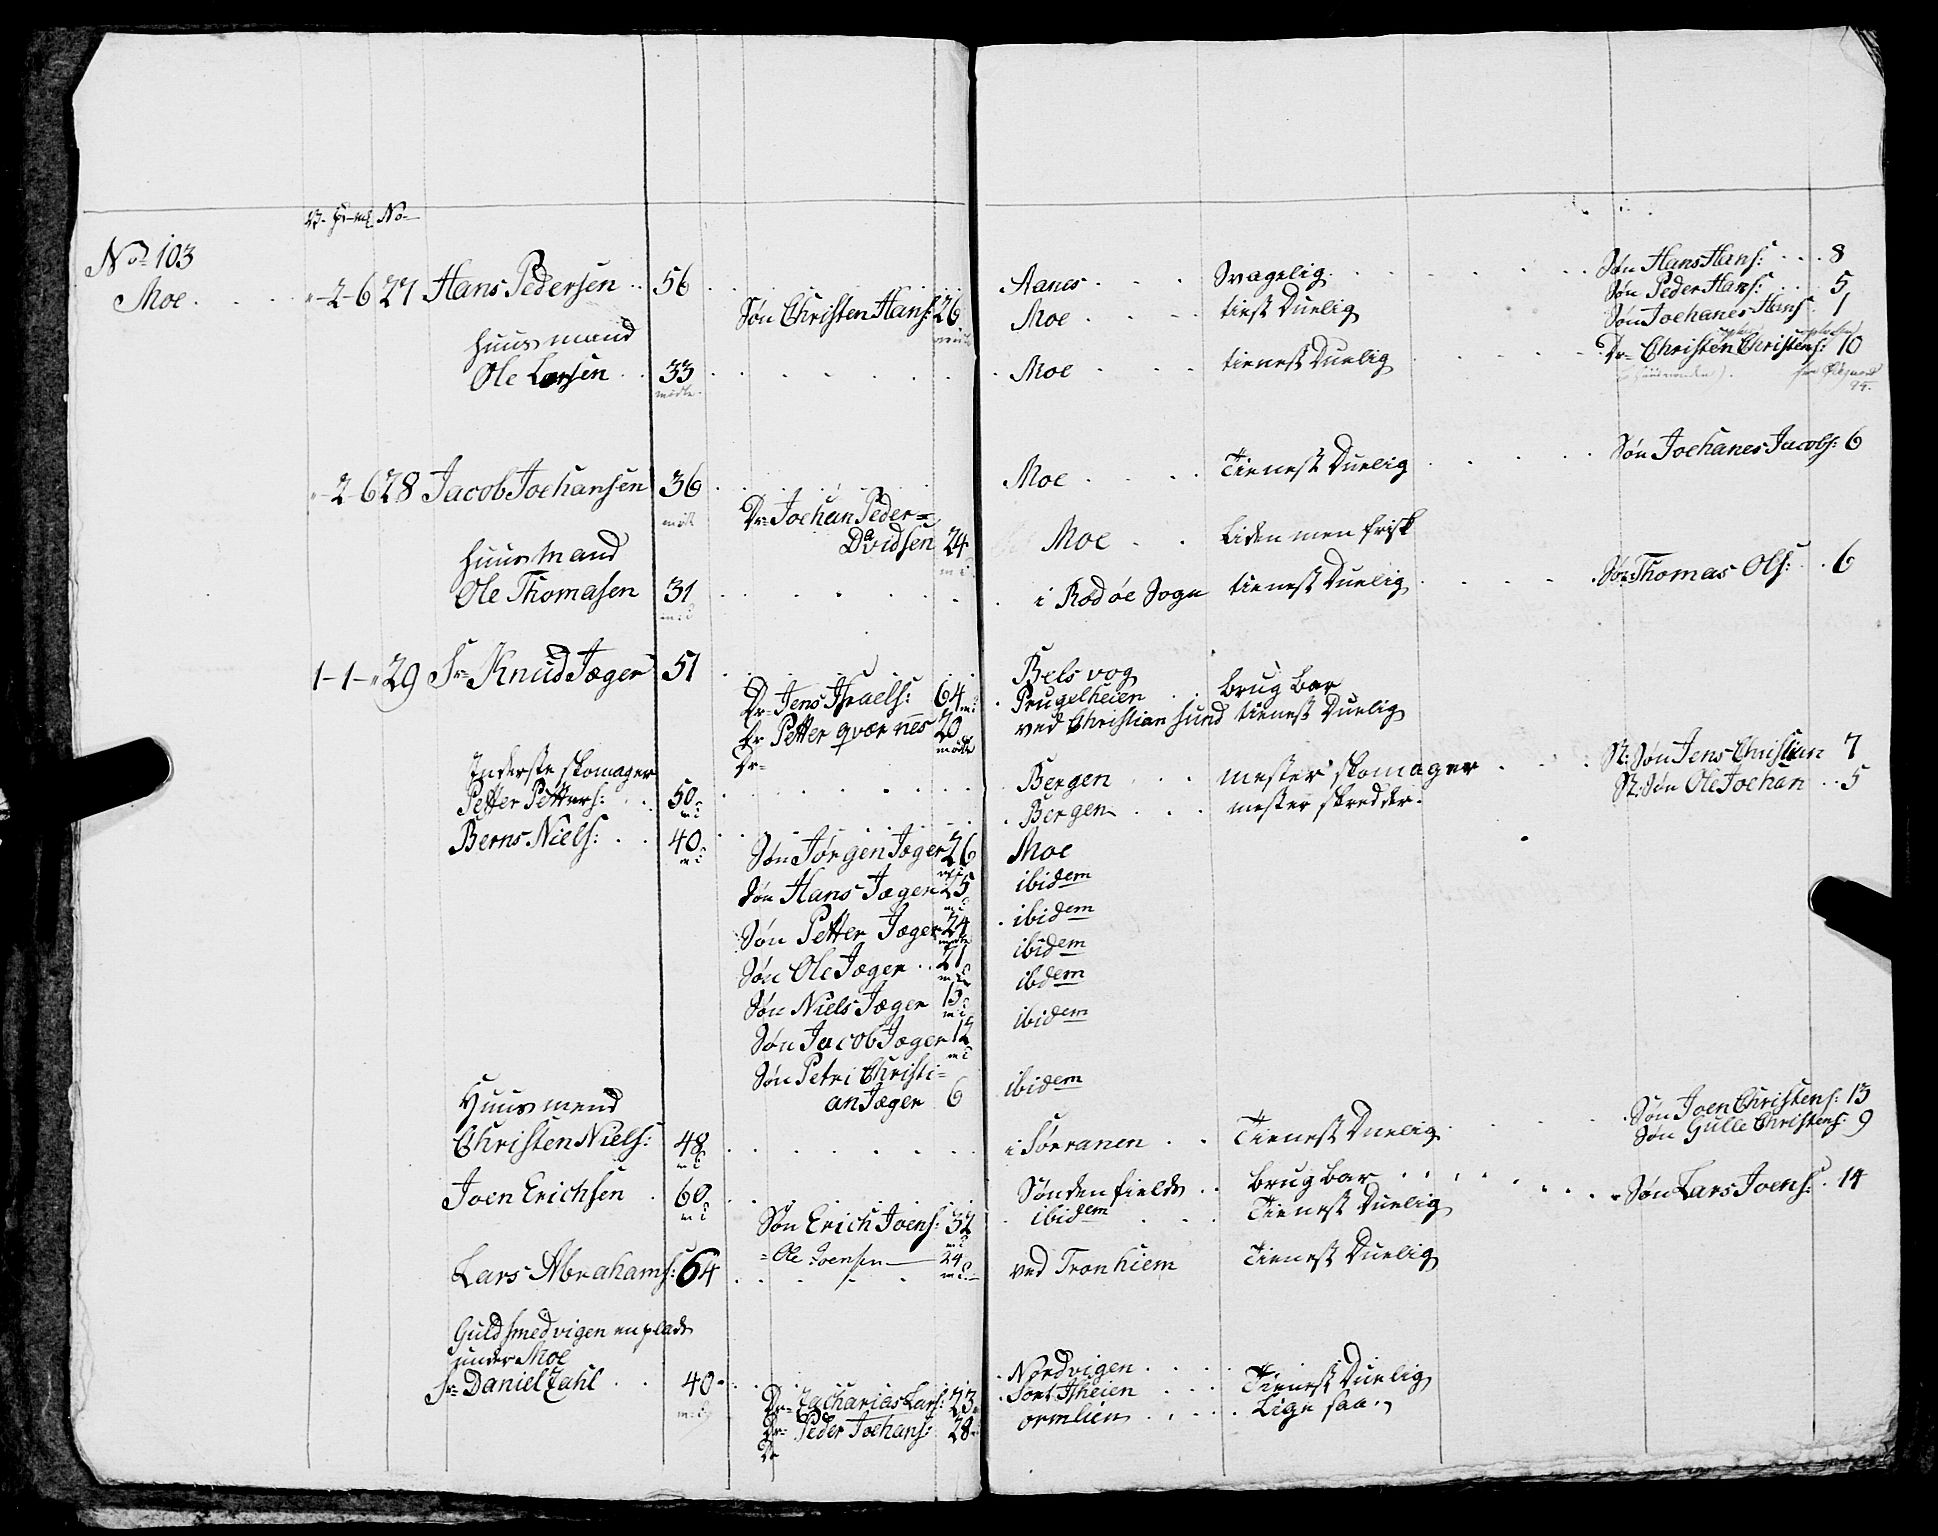 No 103
Moe
2-6 27 Hans Pedersen 56 Aanes Svagelig Søn Hans Hans: 8
Søn Peder Hans: 5
Søn Christen Hans: 26 Moe tienst Duelig Søn Joehanes Hans: 1
huusmand
Ole Larsen 33 Moe tienest Duelig Dr Christen Christens: 10
mødte
2 6 28 Jacob Joehansen 36 Moe Tienest Duelig Søn Joehanes Jacobs: 6
Dr Joehan Peder=
Davidsen 24 Moe Liden men frisk
huusmand
Ole Thomasen 31 i Rødøe Sogn tienest Duelig Søn Thomas Ols: 6
1-1-" 29 Sr Knud Jæger 51 Belsvog
Dr Jens Israels: 64 Prugelheien brugbar
Dr Petter qværnes 20 ved Christiansund tienest Duelig
mødte
Dr
Inderste skomager
Petter Petters: 50 Bergen mester skomager St: Søn Jens Christian 7
Berns Niels: 40 Bergen mester skredder St: Søn Ole Joehan 5
Søn Jørgen Jæger 26 Moe
Søn Hans Jæger 25 ibidem
Søn Petter Jæger 24 ibidem
Søn Ole Jæger 21 ibidem
Søn Niels Jæger 15 ibdem
Søn Jacob Jæger 12 ibidem
Søn Petri Christi=
an Jæger 6 ibidem
Huusmend
Christen Niels: 48 i Sørranen Tienest Duelig Søn Joen Christens: 13
Søn Gulle Christens: 9
Joen Erichsen 60 Søndenfields brugbar Søn Lars Joens: 14
Søn Erich Joens: 32 ibidem Tienest Duelig
= Ole Joensen 24
Lars Abrahams: 64 ved Tronhiem Tienest Duelig
Guldsmedvigen en plads
under Moe
Sr Daniel Zahl 40 Nordvigen
Dr Zacharias Lars: 23 Tienest Duelig
Dr Peder Joehans: 28 ormlien Lige saa
Dr